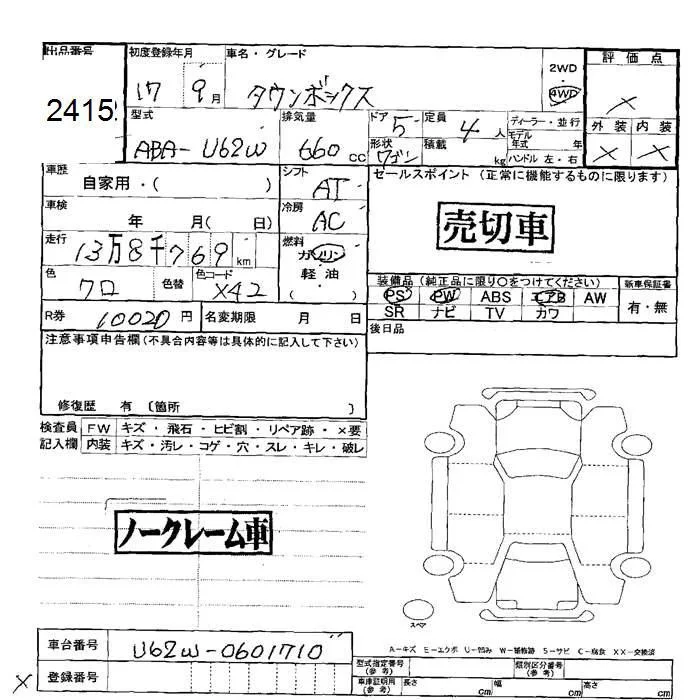 出品番号
2415
初度登録年月
17 9月
車名・グレード
タウンボックス
2WD
4WD
評価点
×
型式
ABA-U62W
排気量
660cc
ドア 5
定員 4人
ディーラー・並行
モデル年式 年
形状 ワゴン
積載 kg
ハンドル 左・右
外装 内装
× ×
車歴
自家用・( )
シフト
AT
セールスポイント (正常に機能するものに限ります)
売切車
車検
年 月( 日)
冷房
AC
走行
13万8千769km
燃料
ガソリン
軽・油
( )
色
クロ
色替
色コード
X42
装備品(純正品に限り○をつけてください)
新車保証書
PS PW ABS エアB AW
SR ナビ TV カワ
有・無
R券 10020円
名変期限 月 日
後日品
注意事項申告欄(不具合内容等は具体的に記入して下さい)
修復歴 有〔箇所 〕
検査員記入欄
FW キズ・飛石・ヒビ割・リペア跡・×要
内装 キズ・汚レ・コゲ・穴・スレ・キレ・破レ
ノークレーム車
スペア
A-キズ E-エクボ U-凹み W-補修跡 S-サビ C-腐食 XX-交換済
車台番号
U62W-0601710
×
登録番号
型式指定番号(参考)
類別区分番号(参考)
車庫証明用(参考) 長さ cm 幅 cm 高さ cm